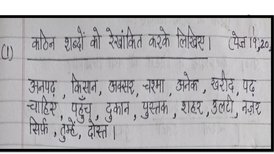 (1) कठिन शब्दों को रेखांकित करके लिखिए। (पेज 19,20,
अनपढ़, किसान, अक्सर, चश्मा अनेक, खरीद, पढ़
चाहिए पहुँचु, दुकान, पुस्तक, शहर, उलटी, नज़र
सिर्फ, तुम्हें, दोस्त।